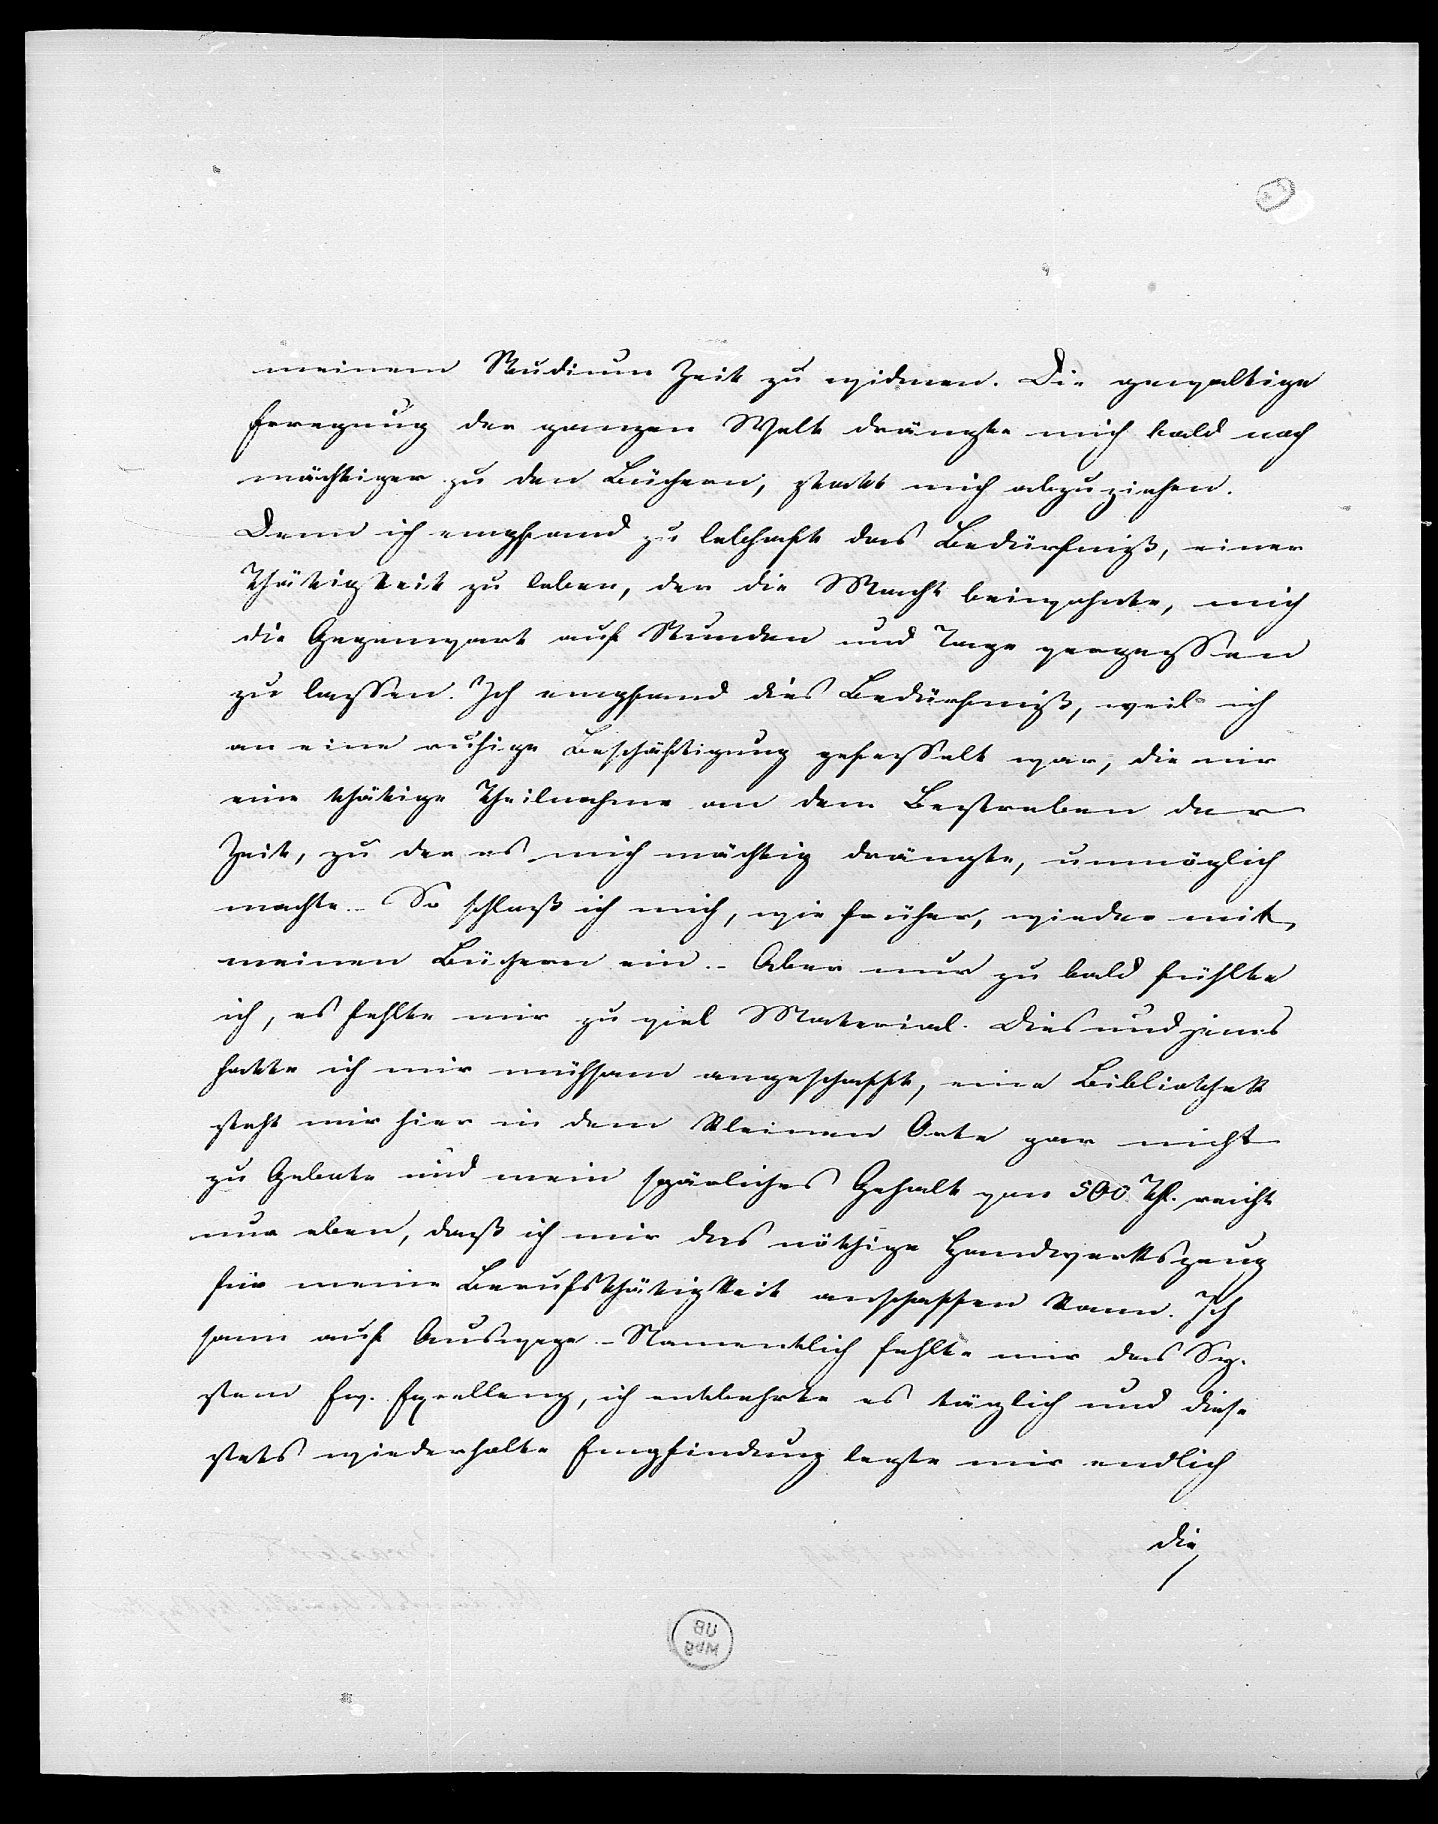 meinem Studium Zeit zu widmen. Die gewaltige
Erregung der ganzen Welt drängte mich bald noch
mächtiger zu den Büchern, statt mich abzuziehen.
Denn ich empfand zu lebhaft das Bedürfniß, einer
Thätigkeit zu leben, der die Macht beiwohnte, mich
die Gegenwart auf Stunden und Tage vergessen
zu lassen. Ich empfand dies Bedürfniß, weil ich
an eine ruhige Beschäftigung gefesselt war, die mir
eine thätige Theilnahme an dem Bestreben der
Zeit, zu der es mich mächtig drängte, unmöglich
machte. – So schloß ich mich, wie früher, wieder mit
meinen Büchern ein. – Aber nur zu bald fühlte
ich, es fehlte mir zu viel Material. Dies und jenes
hatte ich mir mühsam angeschafft, eine Bibliothek
steht mir hier in dem kleinen Orte gar nicht
zu Gebote und mein spärliches Gehalt von 500 Th. reicht
nur eben, daß ich mir das nöthige Handwerkszeug
für meine Berufsthätigkeit anschaffen kann. Ich
sann auf Auswege. – Namentlich fehlte mir das Sy-
stem Ew. Excellenz, ich entbehrte es täglich und diese
stets wiederholte Empfindung legte mir endlich
die
UB
Mbg